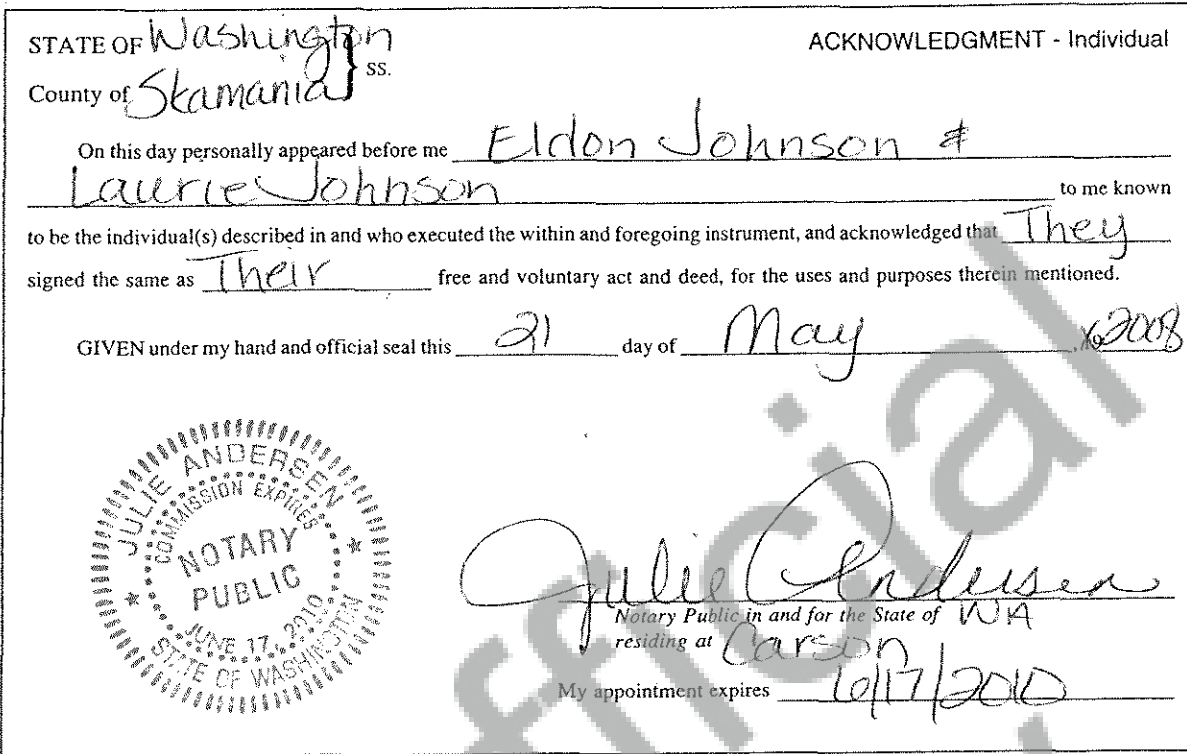 STATE OF Washington
ACKNOWLEDGMENT - Individual
} ss.
County of Skamania
On this day personally appeared before me Eldon Johnson &
Laurie Johnson to me known
to be the individual(s) described in and who executed the within and foregoing instrument, and acknowledged that They
signed the same as Their free and voluntary act and deed, for the uses and purposes therein mentioned.
GIVEN under my hand and official seal this 21 day of May, 2008
JULIE ANDERSEN
COMMISSION EXPIRES
NOTARY
PUBLIC
JUNE 17, 2010
STATE OF WASHINGTON
Julie Andersen
Notary Public in and for the State of WA
residing at Carson
My appointment expires 6/17/2010
fficial